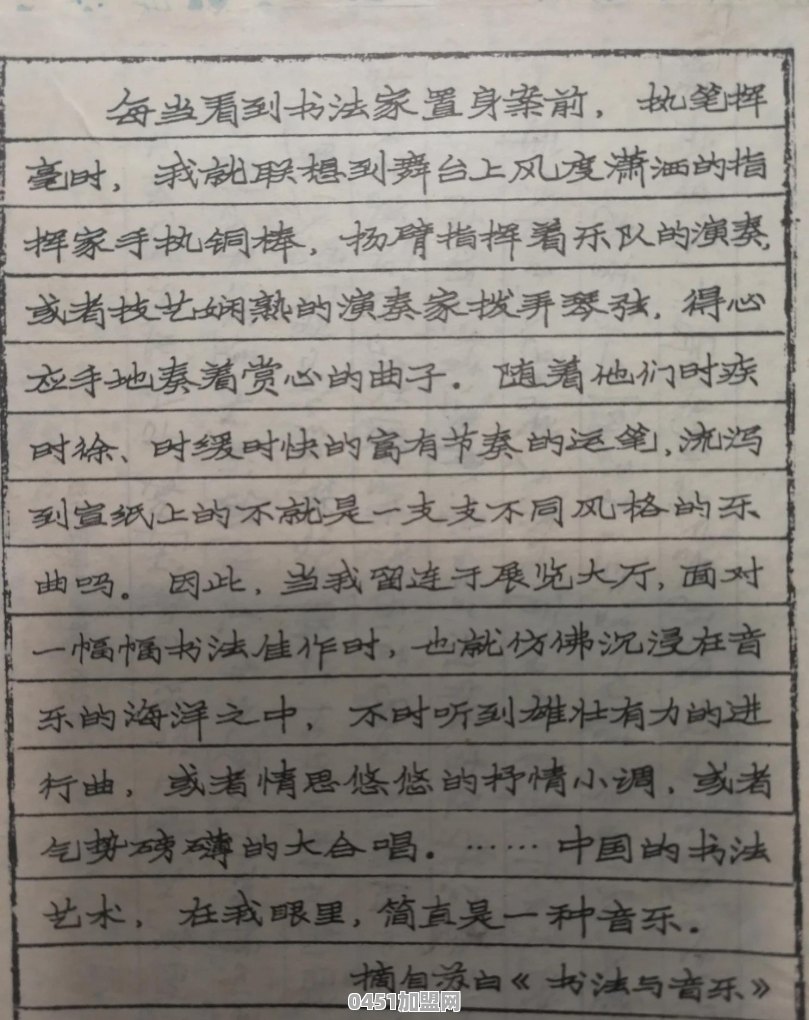 每当看到书法家置身案前，执笔挥
毫时，我就联想到舞台上风度潇洒的指
挥家手执铜棒，扬臂指挥着乐队的演奏，
或者技艺娴熟的演奏家拨弄琴弦，得心
应手地奏着赏心的曲子。随着他们时疾
时徐、时缓时快的富有节奏的运笔，流泻
到宣纸上的不就是一支支不同风格的乐
曲吗。因此，当我留连于展览大厅，面对
一幅幅书法佳作时，也就仿佛沉浸在音
乐的海洋之中，不时听到雄壮有力的进
行曲，或者情思悠悠的抒情小调，或者
气势磅礴的大合唱。……中国的书法
艺术，在我眼里，简直是一种音乐。
摘自苏白《书法与音乐》
0451加盟网